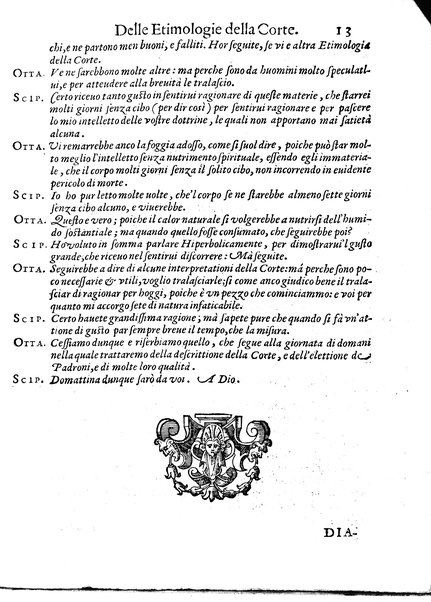 Delle Etimologie della Corte. 13
chi, e ne partono men buoni, e falliti. Hor seguite, se vi e altra Etimologia
della Corte.
OTTA. Ve ne sarebbono molte altre: ma perche sono da huomini molto speculati-
ui, e per attendere alla breuità le tralascio.
SCIP. Certo riceuo tanto gusto in sentirui ragionare di queste materie, che starei
molti giorni senza cibo (per dir così) per sentirui ragionare e per pascere
lo mio intelletto delle vostre dottrine, le quali non apportano mai satietà
alcuna.
OTTA. Vi remarrebbe anco la foggia adosso, come si suol dire, poiche può star mol-
to meglio l'intelletto senza nutrimento spirituale, essendo egli immateria-
le, che il corpo molti giorni senza il solito cibo, non incorrendo in euidente
pericolo di morte.
SCIP. Io ho pur letto molte uolte, che'l corpo se ne starebbe almeno sette giorni
senza cibo alcuno, e viuerebbe.
OTTA. Questo e vero; poiche il calor naturale si volgerebbe a nutrirsi dell'humi-
do sostantiale; ma quando quello fosse consumato, che seguirebbe poi?
SCIP. Ho voluto in somma parlare Hiperbolicamente, per dimostrarui'l gusto
grande, che riceuo nel sentirui discorrere: Mà seguite.
OTTA. Seguirebbe a dire di alcune interpretationi della Corte: má perche sono po-
co necessarie & vtili, voglio tralasciarle; si come anco giudico bene il trala-
sciar di ragionar per hoggi, poiche è vn pezzo che cominciammo: e voi per
quanto mi accorgo sete di natura infaticabile.
SCIP. Certo hauete grandissima ragione; mà sapete pure che quando si fà vn'at-
tione di gusto par sempre breue il tempo, che la misura.
OTTA. Cessiamo dunque e riserbiamo quello, che segue alla giornata di domani
nella quale trattaremo della descrittione della Corte, e dell'elettione de
Padroni, e di molte loro qualità.
SCIP. Domattina dunque sarò da voi. A Dio.
DIA-